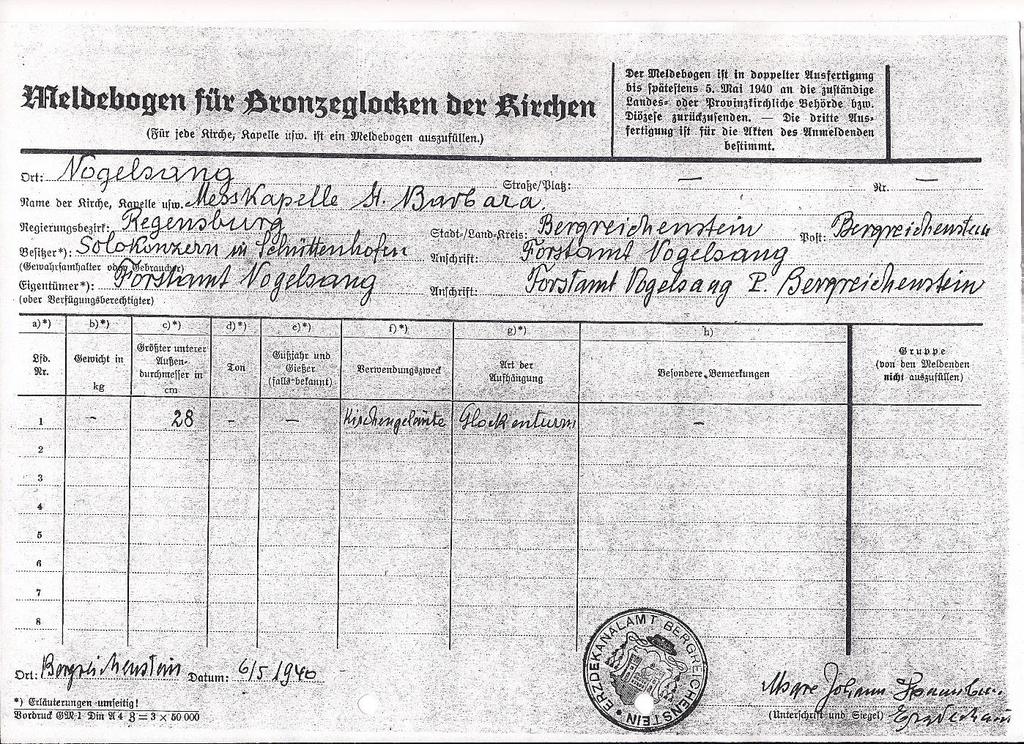 Meldebogen für Bronzeglocken der Kirchen
(Für jede Kirche, Kapelle usw. ist ein Meldebogen auszufüllen.)
Der Meldebogen ist in doppelter Ausfertigung
bis spätestens 5. Mai 1940 an die zuständige
Landes- oder Provinzkirchliche Behörde bzw.
Diözese zurückzusenden. — Die dritte Aus-
fertigung ist für die Akten des Anmeldenden
bestimmt.
Ort: Vogelsang Straße/Platz: — Nr. —
Name der Kirche, Kapelle usw. Messkapelle St. Barbara.
Regierungsbezirk: Regensburg Stadt-/Land-Kreis: Bergreichenstein Post: Bergreichenstein
Besitzer*): Solokonzern in Schüttenhofen Anschrift: Forstamt Vogelsang
(Gewahrsamhalter oder Gebraucher)
Eigentümer*): Forstamt Vogelsang Anschrift: Forstamt Vogelsang P. Bergreichenstein
(oder Verfügungsberechtigter)
a)*) b)*) c)*) d)*) e)*) f)*) g)*) h)
Lfd. Nr.
Gewicht in kg
Größter unterer Außendurchmesser in cm
Ton
Gußjahr und Gießer (falls bekannt)
Verwendungszweck
Art der Aufhängung
Besondere Bemerkungen
Gruppe (von den Meldenden nicht auszufüllen)
1 - 28 - — Kirchengeläute Glockenturm —
2
3
4
5
6
7
8
Ort: Bergreichenstein Datum: 6/5 1940
ERZDEKANALAMT BERGREICHENSTEIN
Johann
(Unterschrift und Siegel) Erzdechant
*) Erläuterungen umseitig!
Vordruck GM 1 Din A 4 3 = 3 × 50 000